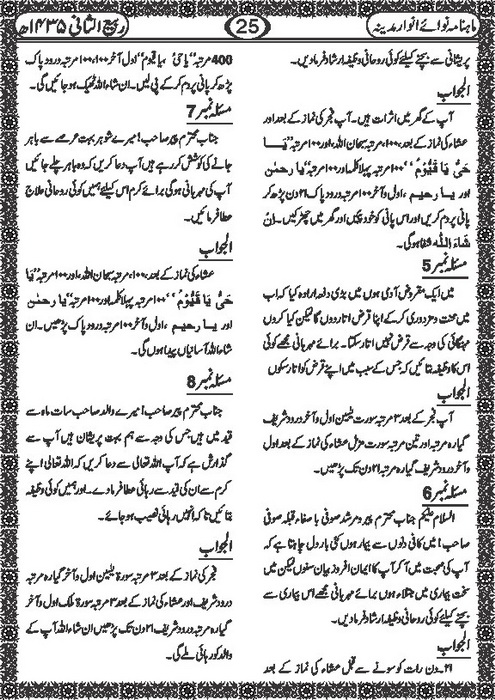 ماہنامہ نوائے انوار مدینہ
25
ربیع الثانی ۱۴۳۵ھ
پریشانی سے بچنے کیلئے کوئی روحانی وظیفہ ارشاد فرمادیں۔
الجواب
آپ کے گھر میں اثرات ہیں۔ آپ فجر کی نماز کے بعد اور
عشاء کی نماز کے بعد، ۱۰۰ مرتبہ سبحان اللہ، اور ۱۰۰ مرتبہ "یَا
حَیُّ یَا قَیُّوْمُ" ۱۰۰ مرتبہ پہلا کلمہ اور ۱۰۰ مرتبہ "یا رحمٰن
اور یا رحیم، اول و آخر ۱۰۰ مرتبہ درود پاک ۲۱ دن پڑھ کر
پانی پر دم کریں اور اس پانی کو خود پئیں اور گھر میں چھڑکیں۔ اِنْ
شَاءَ اللّٰہ شفا ہوگی۔
مسئلہ نمبر 5
میں ایک مقروض آدمی ہوں میں بڑی دفعہ ارادہ کیا کہ اب
میں محنت مزدوری کر کے اپنا قرض اتار دوں گا لیکن کیا کروں
مہنگائی کی وجہ سے قرض نہیں اتار سکتا۔ برائے مہربانی مجھے کوئی
اس کا وظیفہ بتائیں کہ جس کے سبب میں اپنے قرض کو اتار سکوں
الجواب
آپ فجر کے بعد ۳ مرتبہ سورت یٰسین اول و آخر درود شریف
گیارہ مرتبہ اور تین مرتبہ سورت مزمل عشاء کی نماز کے بعد اول
و آخر درود شریف گیارہ مرتبہ ۲۱ دن تک پڑھیں۔
مسئلہ نمبر 6
السلام علیکم جناب محترم پیر و مرشد صوفی باصفاء قبلہ صوفی
صاحب! میں کافی دنوں سے بیمار ہوں کئی بار دل چاہتا ہے کہ
آپ کی صحبت میں آ کر آپ کا ایمان افروز بیان سنوں لیکن میں
سخت بیماری میں مبتلاء ہوں برائے مہربانی مجھے اس بیماری سے
بچنے کیلئے کوئی روحانی وظیفہ ارشاد فرمادیں۔
الجواب
۲۱۔ دن رات کو سونے سے قبل عشاء کی نماز کے بعد
400 مرتبہ "یا حَیُّ یا قیوم" اول آخر ۱۰۰،۱۰۰ مرتبہ درود پاک
پڑھ کر پانی پر دم کر کے پی لیں۔ ان شاء اللہ ٹھیک ہو جائیں گی۔
مسئلہ نمبر 7
جناب محترم پیر صاحب! میرے شوہر بہت عرصے سے باہر
جانے کی کوشش کر رہے ہیں آپ دعا کریں کہ وہ باہر چلے جائیں
آپ کی مہربانی ہوگی برائے کرم اس کیلئے ہمیں کوئی روحانی علاج
عطا فرمائیں۔
الجواب
عشاء کی نماز کے بعد، ۱۰۰ مرتبہ سبحان اللہ، اور ۱۰۰ مرتبہ "یَا
حَیُّ یَا قَیُّوْمُ" ۱۰۰ مرتبہ پہلا کلمہ اور ۱۰۰ مرتبہ "یا رحمٰن
اور یا رحیم، اول و آخر ۱۰۰ مرتبہ درود پاک پڑھیں۔ ان
شاء اللہ آسانیاں پیدا ہوں گی۔
مسئلہ نمبر 8
جناب محترم پیر صاحب! میرے والد صاحب سات ماہ سے
قید میں ہیں جس کی وجہ سے ہم بہت پریشان ہیں آپ سے
گذارش ہے کہ آپ اللہ تعالیٰ سے دعا کریں کہ اللہ تعالیٰ اپنے
کرم سے ان کی قید سے رہائی عطا فرمادے۔ اور ہمیں کوئی وظیفہ
بتائیں تاکہ انہیں رہائی نصیب ہو جائے۔
الجواب
فجر کی نماز کے بعد ۳ مرتبہ سورۃ یٰسین اول و آخر گیارہ مرتبہ
درود شریف اور عشاء کی نماز کے بعد ۳ مرتبہ سورۃ ملک اول و آخر
گیارہ مرتبہ درود شریف ۲۱ دن تک پڑھیں ان شاء اللہ آپ کے
والد کو رہائی ملے گی۔